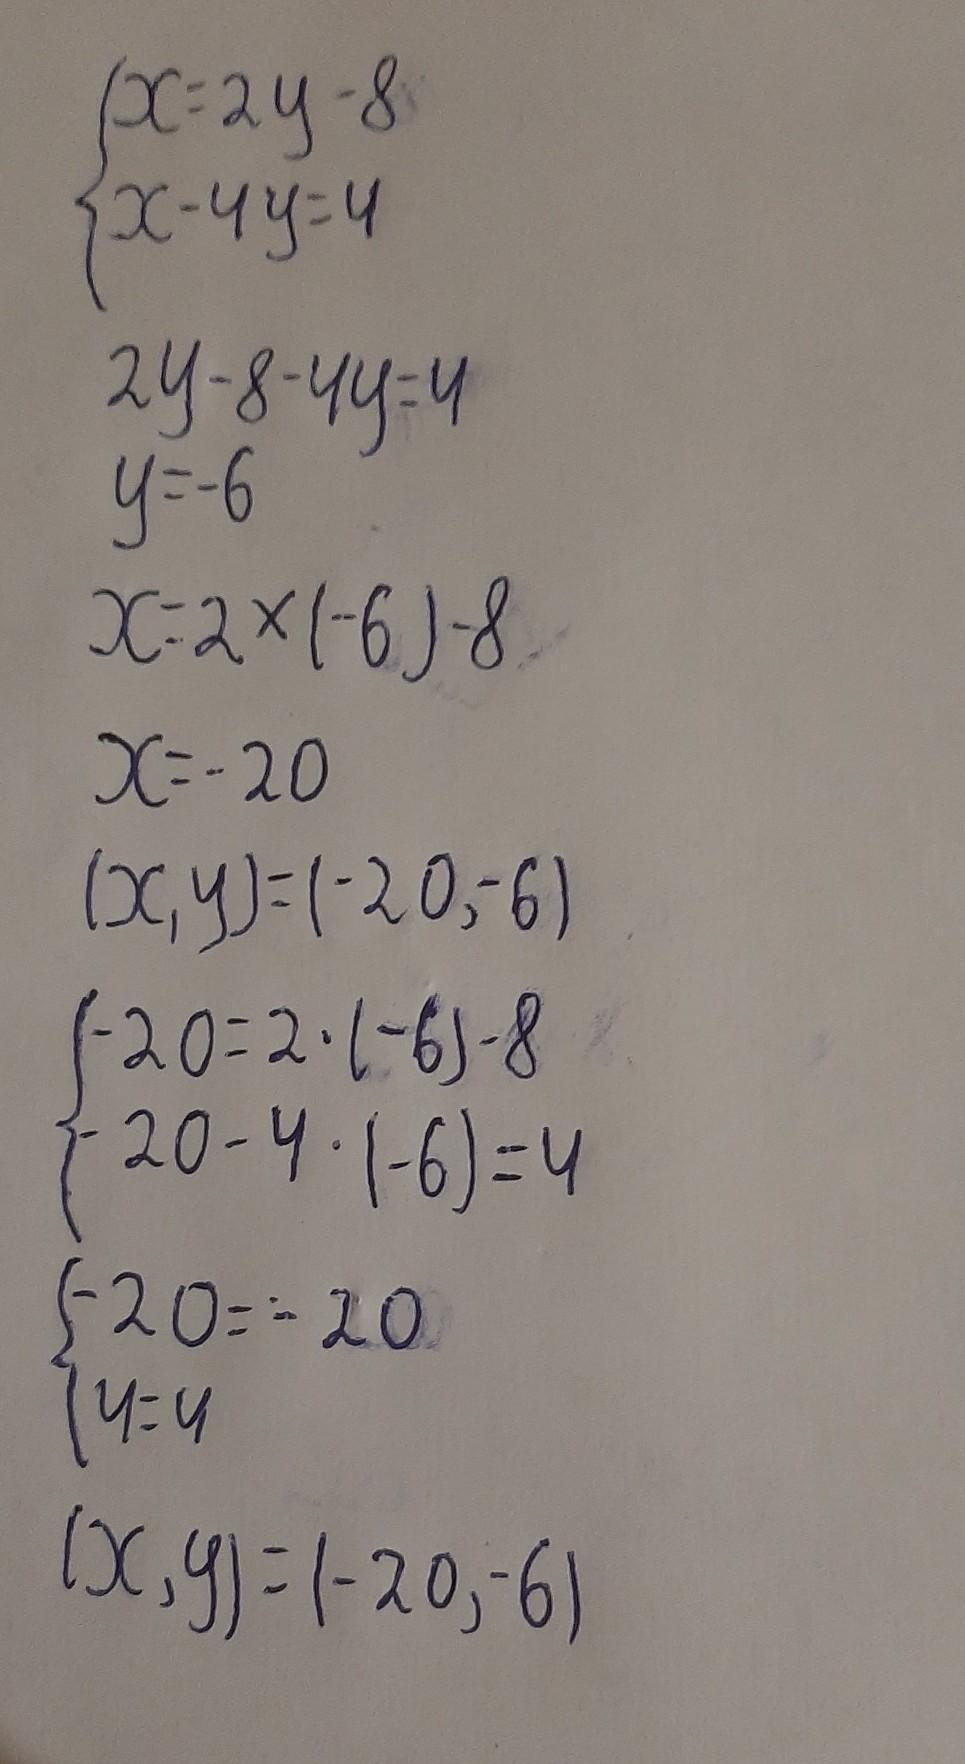 {x=2y-8
x-4y=4
2y-8-4y=4
y=-6
x=2×(-6)-8
x=-20
(x,y)=(-20,-6)
{-20=2·(-6)-8
-20-4·(-6)=4
{-20=-20
4=4
(x,y)=(-20,-6)